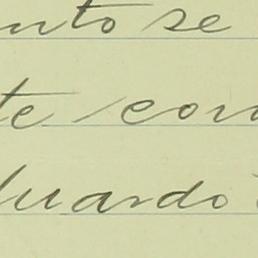 nto se
te con
duardo